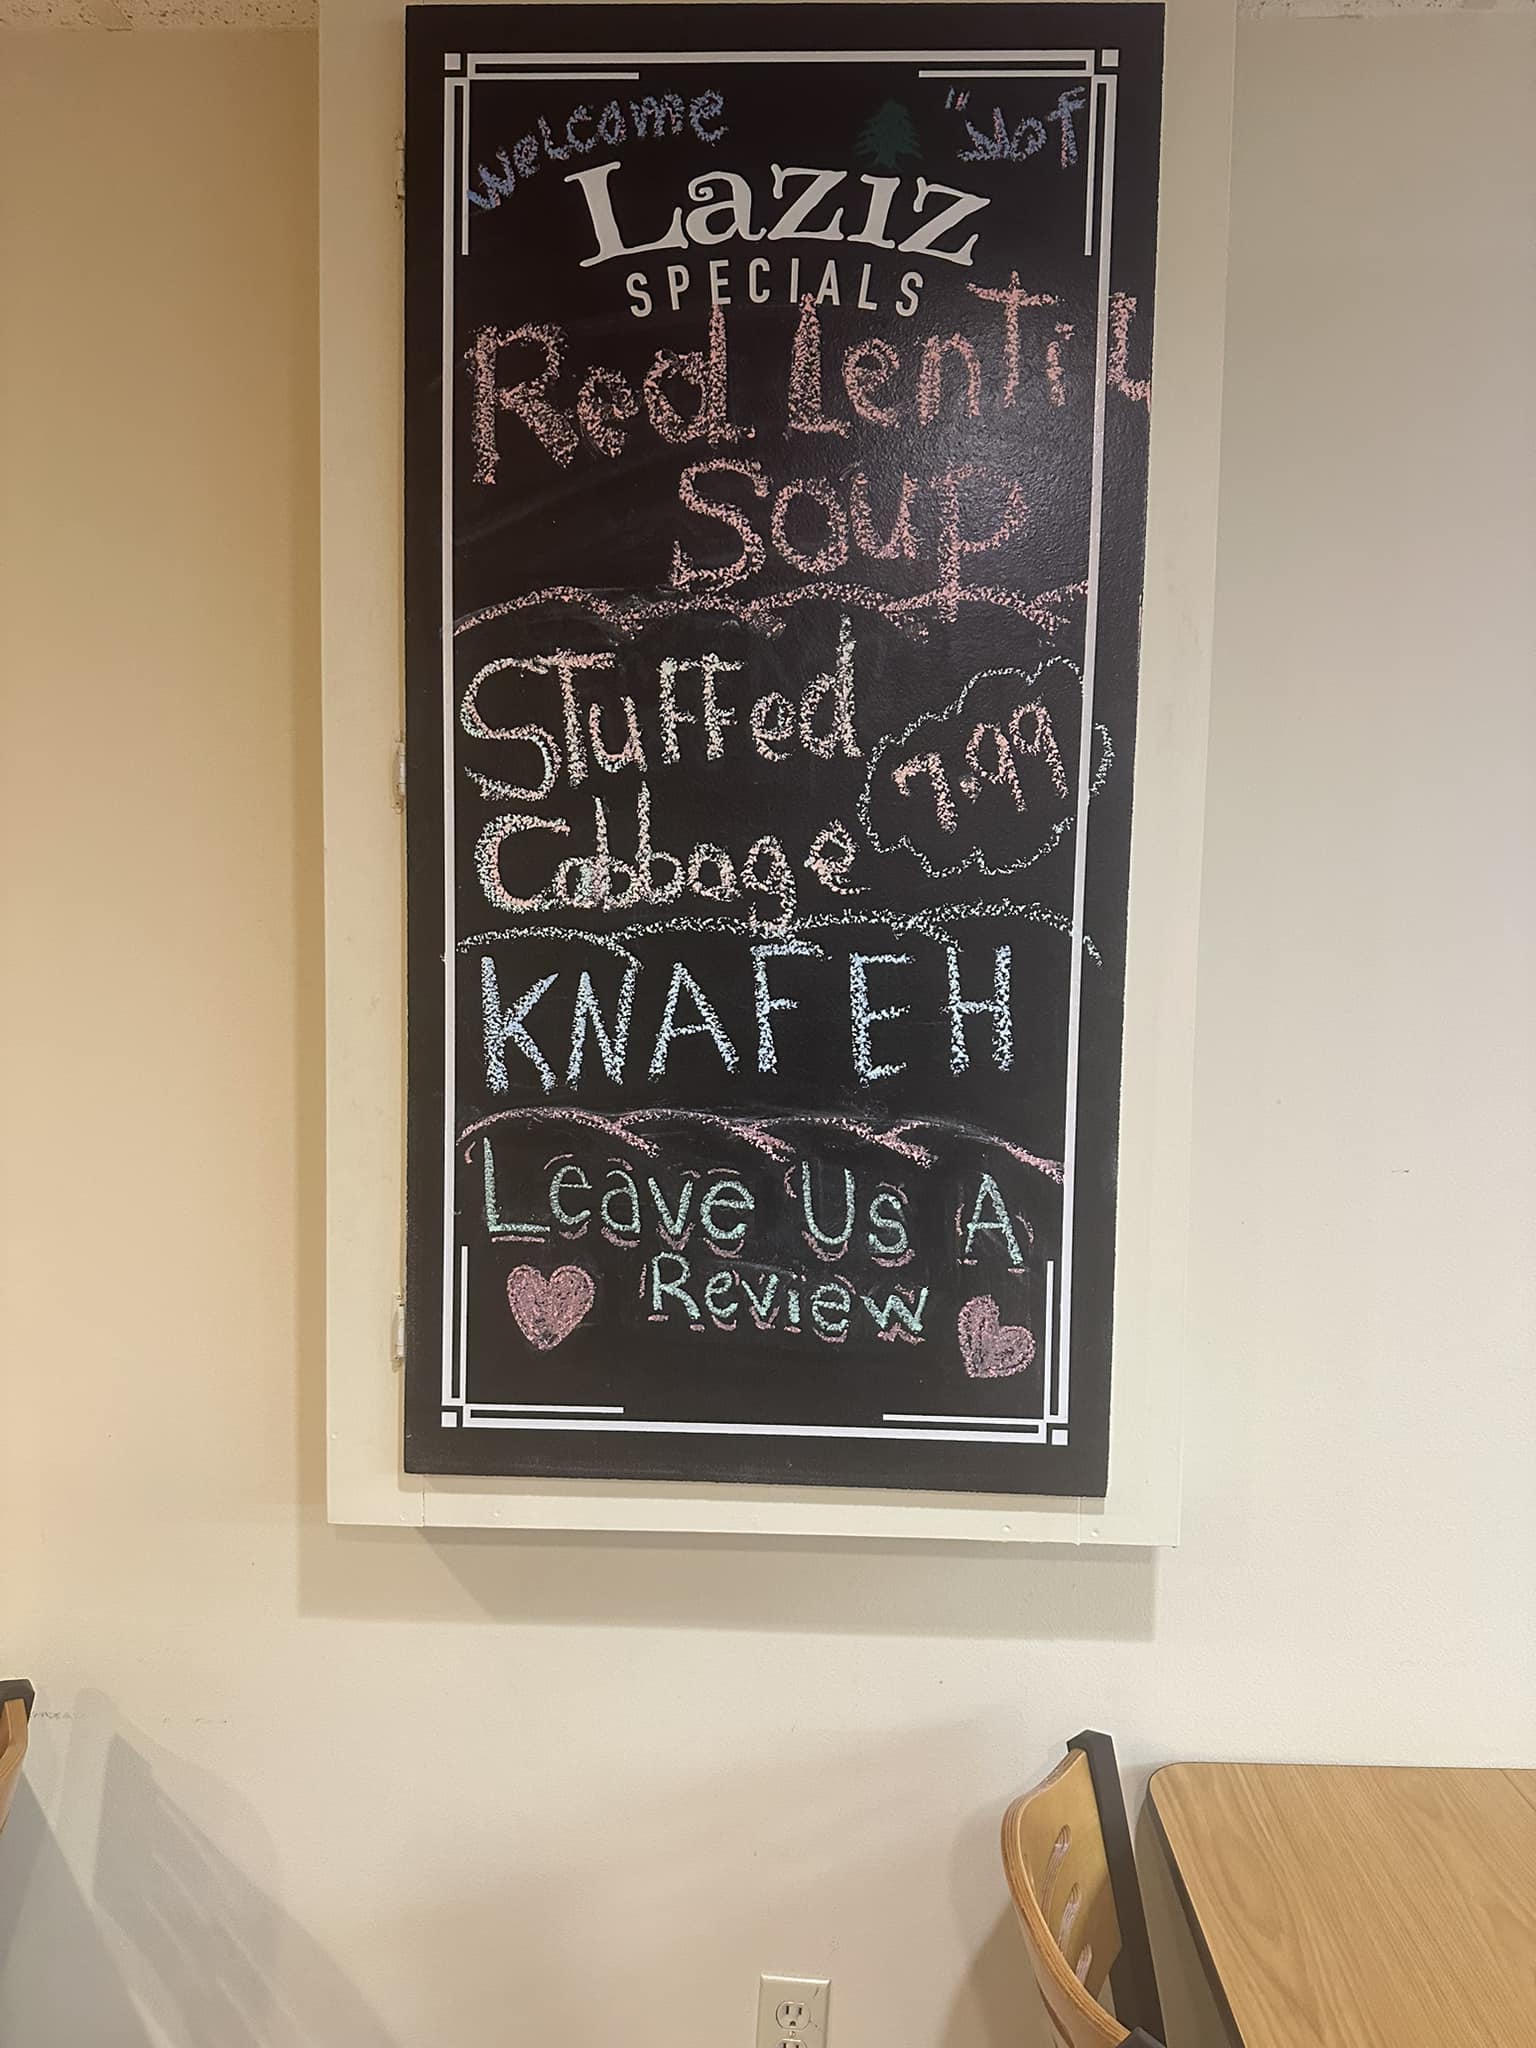 Welcome
Laziz
SPECIALS
Red Lentil
Soup
Stuffed
Cabbage
7.99
KNAFEH
Leave Us A
Review